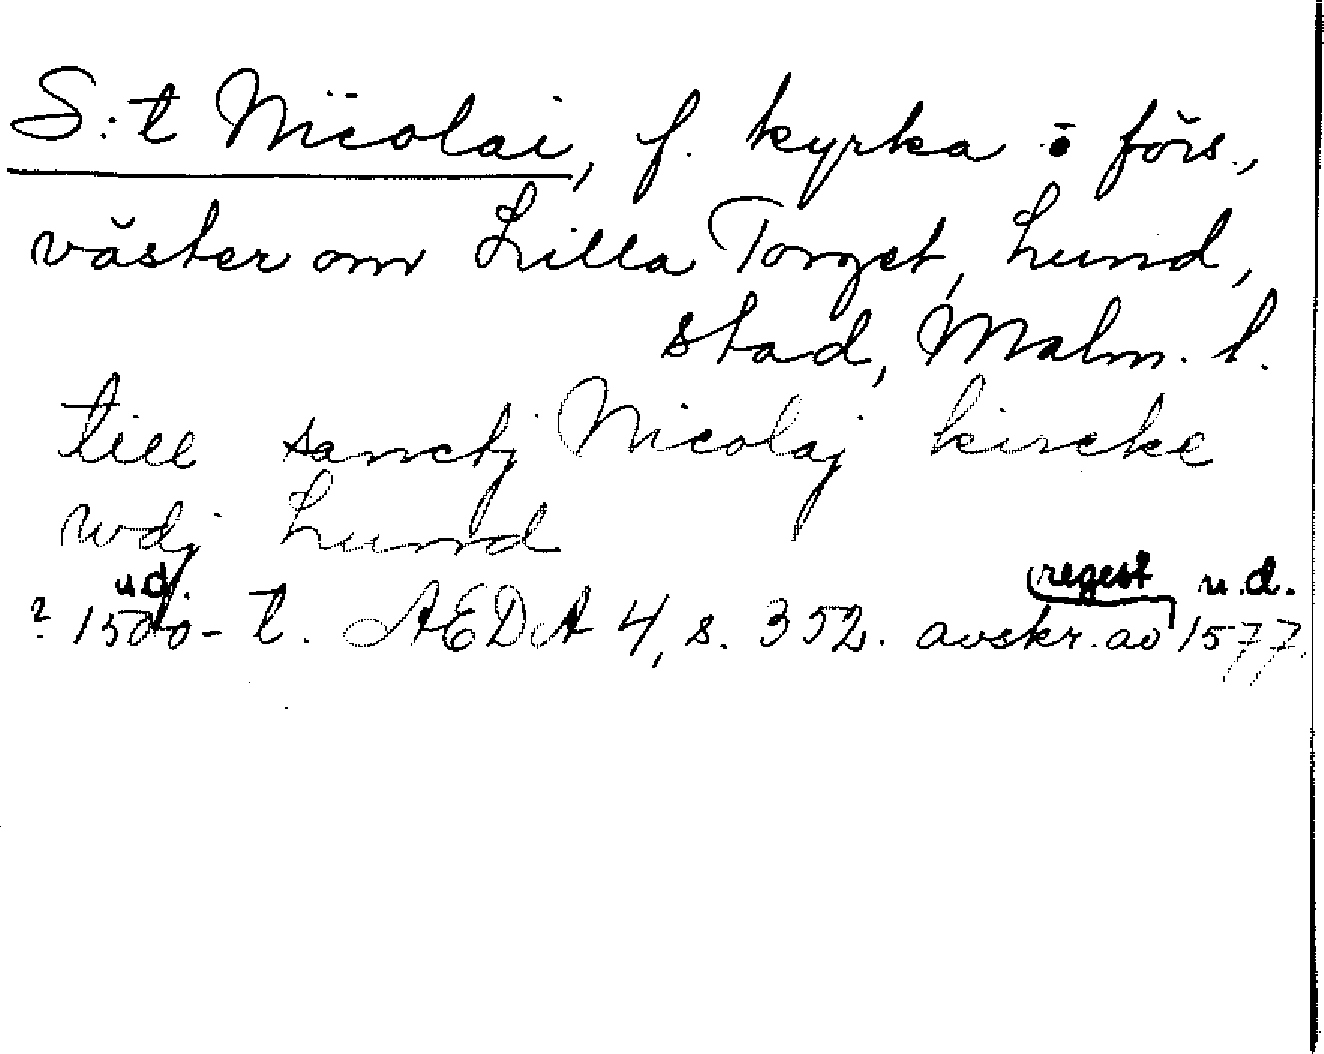 S:t Nicolai, f. kyrka i förs.,
väster om Lilla Torget, Lund,
stad, Malm. l.
till sanctj Nicolaj kircke
wdj Lund
u.d. regest u.d.
? 1500-t. AEDA 4, s. 352. avskr. av 1577.